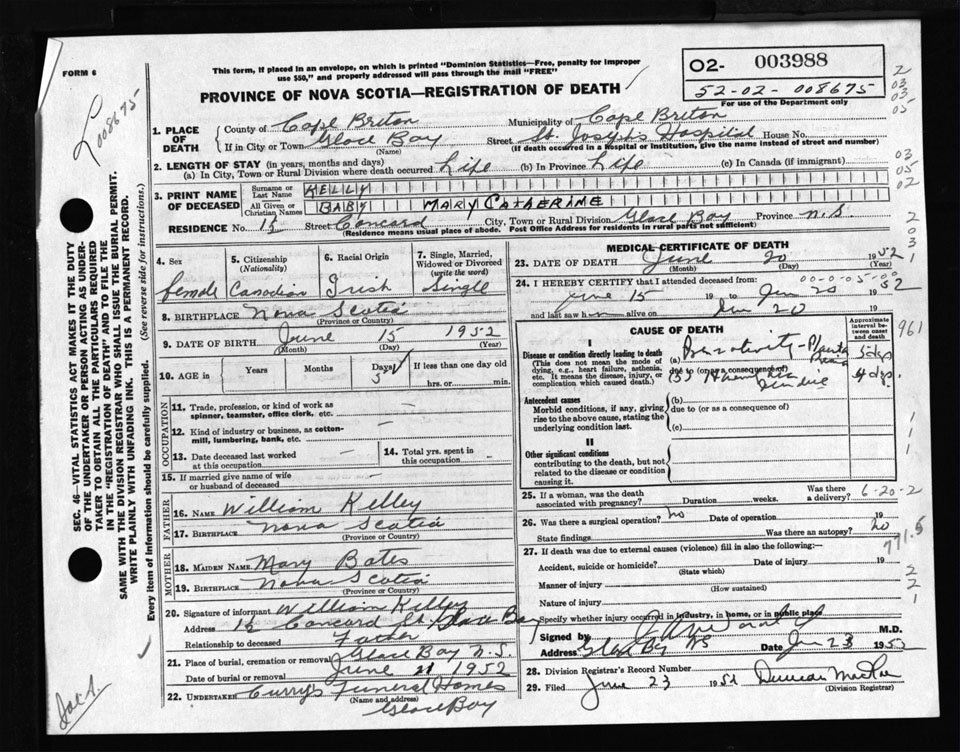 FORM 6
This form, if placed in an envelope, on which is printed "Dominion Statistics—Free, penalty for improper
use $50," and properly addressed will pass through the mail "FREE"
PROVINCE OF NOVA SCOTIA—REGISTRATION OF DEATH
02- 003988
52-02-008675
For use of the Department only
008675
1. PLACE OF DEATH
County of Cape Breton Municipality of Cape Breton
If in City or Town Glace Bay Street St. Joseph's Hospital House No.
(Name) (If death occurred in a Hospital or Institution, give the name instead of street and number)
2. LENGTH OF STAY (in years, months and days)
(a) In City, Town or Rural Division where death occurred Life (b) In Province Life (c) In Canada (if immigrant)
3. PRINT NAME OF DECEASED
Surname or Last Name KELLY
All Given or Christian Names BABY MARY CATHERINE
RESIDENCE No. 12 Street Concord City, Town or Rural Division Glace Bay Province N.S.
(Residence means usual place of abode. Post Office Address for residents in rural parts not sufficient)
4. Sex
female
5. Citizenship (Nationality)
Canadian
6. Racial Origin
Irish
7. Single, Married, Widowed or Divorced (write the word)
Single
8. BIRTHPLACE Nova Scotia
(Province or Country)
9. DATE OF BIRTH June 15 1952
(Month) (Day) (Year)
10. AGE in Years Months Days 5 If less than one day old
hrs. or min.
OCCUPATION
11. Trade, profession, or kind of work as
spinner, teamster, office clerk, etc. —
12. Kind of industry or business, as cotton-
mill, lumbering, bank, etc. —
13. Date deceased last worked
at this occupation —
14. Total yrs. spent in
this occupation —
15. If married give name of wife
or husband of deceased —
FATHER
16. Name William Kelley
17. Birthplace Nova Scotia
(Province or Country)
MOTHER
18. MAIDEN NAME Mary Bates
19. BIRTHPLACE Nova Scotia
(Province or Country)
20. Signature of informant William Kelley
Address 12 Concord St. Glace Bay
Relationship to deceased Father
21. Place of burial, cremation or removal Glace Bay N.S.
Date of burial or removal June 21 1952
22. UNDERTAKER Curry's Funeral Homes
(Name and address)
Glace Bay
MEDICAL CERTIFICATE OF DEATH
23. DATE OF DEATH June 20 1952
(Month) (Day) (Year)
24. I HEREBY CERTIFY that I attended deceased from: 00-0-05-00
June 15 19 to Jun 20 1952
and last saw h alive on Jun 20 19
CAUSE OF DEATH
Approximate interval between onset and death
I
Disease or condition directly leading to death
(This does not mean the mode of
dying, e.g., heart failure, asthenia,
etc. It means the disease, injury, or
complication which caused death.)
(a) Prematurity 5 dys
due to (or as a consequence of) 4 dys.
Antecedent causes
Morbid conditions, if any, giving
rise to the above cause, stating the
underlying condition last.
(b)
due to (or as a consequence of)
(c)
II
Other significant conditions
contributing to the death, but not
related to the disease or condition
causing it.
25. If a woman, was the death
associated with pregnancy? Duration weeks. Was there a delivery? 6-20-2
26. Was there a surgical operation? no Date of operation 19
State findings Was there an autopsy? no
27. If death was due to external causes (violence) fill in also the following:—
Accident, suicide or homicide? Date of injury 19
(State which)
Manner of injury
(How sustained)
Nature of injury
Specify whether injury occurred in industry, in home, or in public place
Signed by M.D.
Address Glace Bay NS Date Jun 23 1952
28. Division Registrar's Record Number
29. Filed June 23 1952 Duncan MacRae
(Division Registrar)
961
771.5
SEC. 46—VITAL STATISTICS ACT MAKES IT THE DUTY
OF THE UNDERTAKER OR PERSON ACTING AS UNDER-
TAKER TO OBTAIN ALL THE PARTICULARS REQUIRED
IN THE "REGISTRATION OF DEATH" AND TO FILE THE
SAME WITH THE DIVISION REGISTRAR WHO SHALL ISSUE THE BURIAL PERMIT.
WRITE PLAINLY WITH UNFADING INK. THIS IS A PERMANENT RECORD.
Every item of information should be carefully supplied. (See reverse side for instructions.)